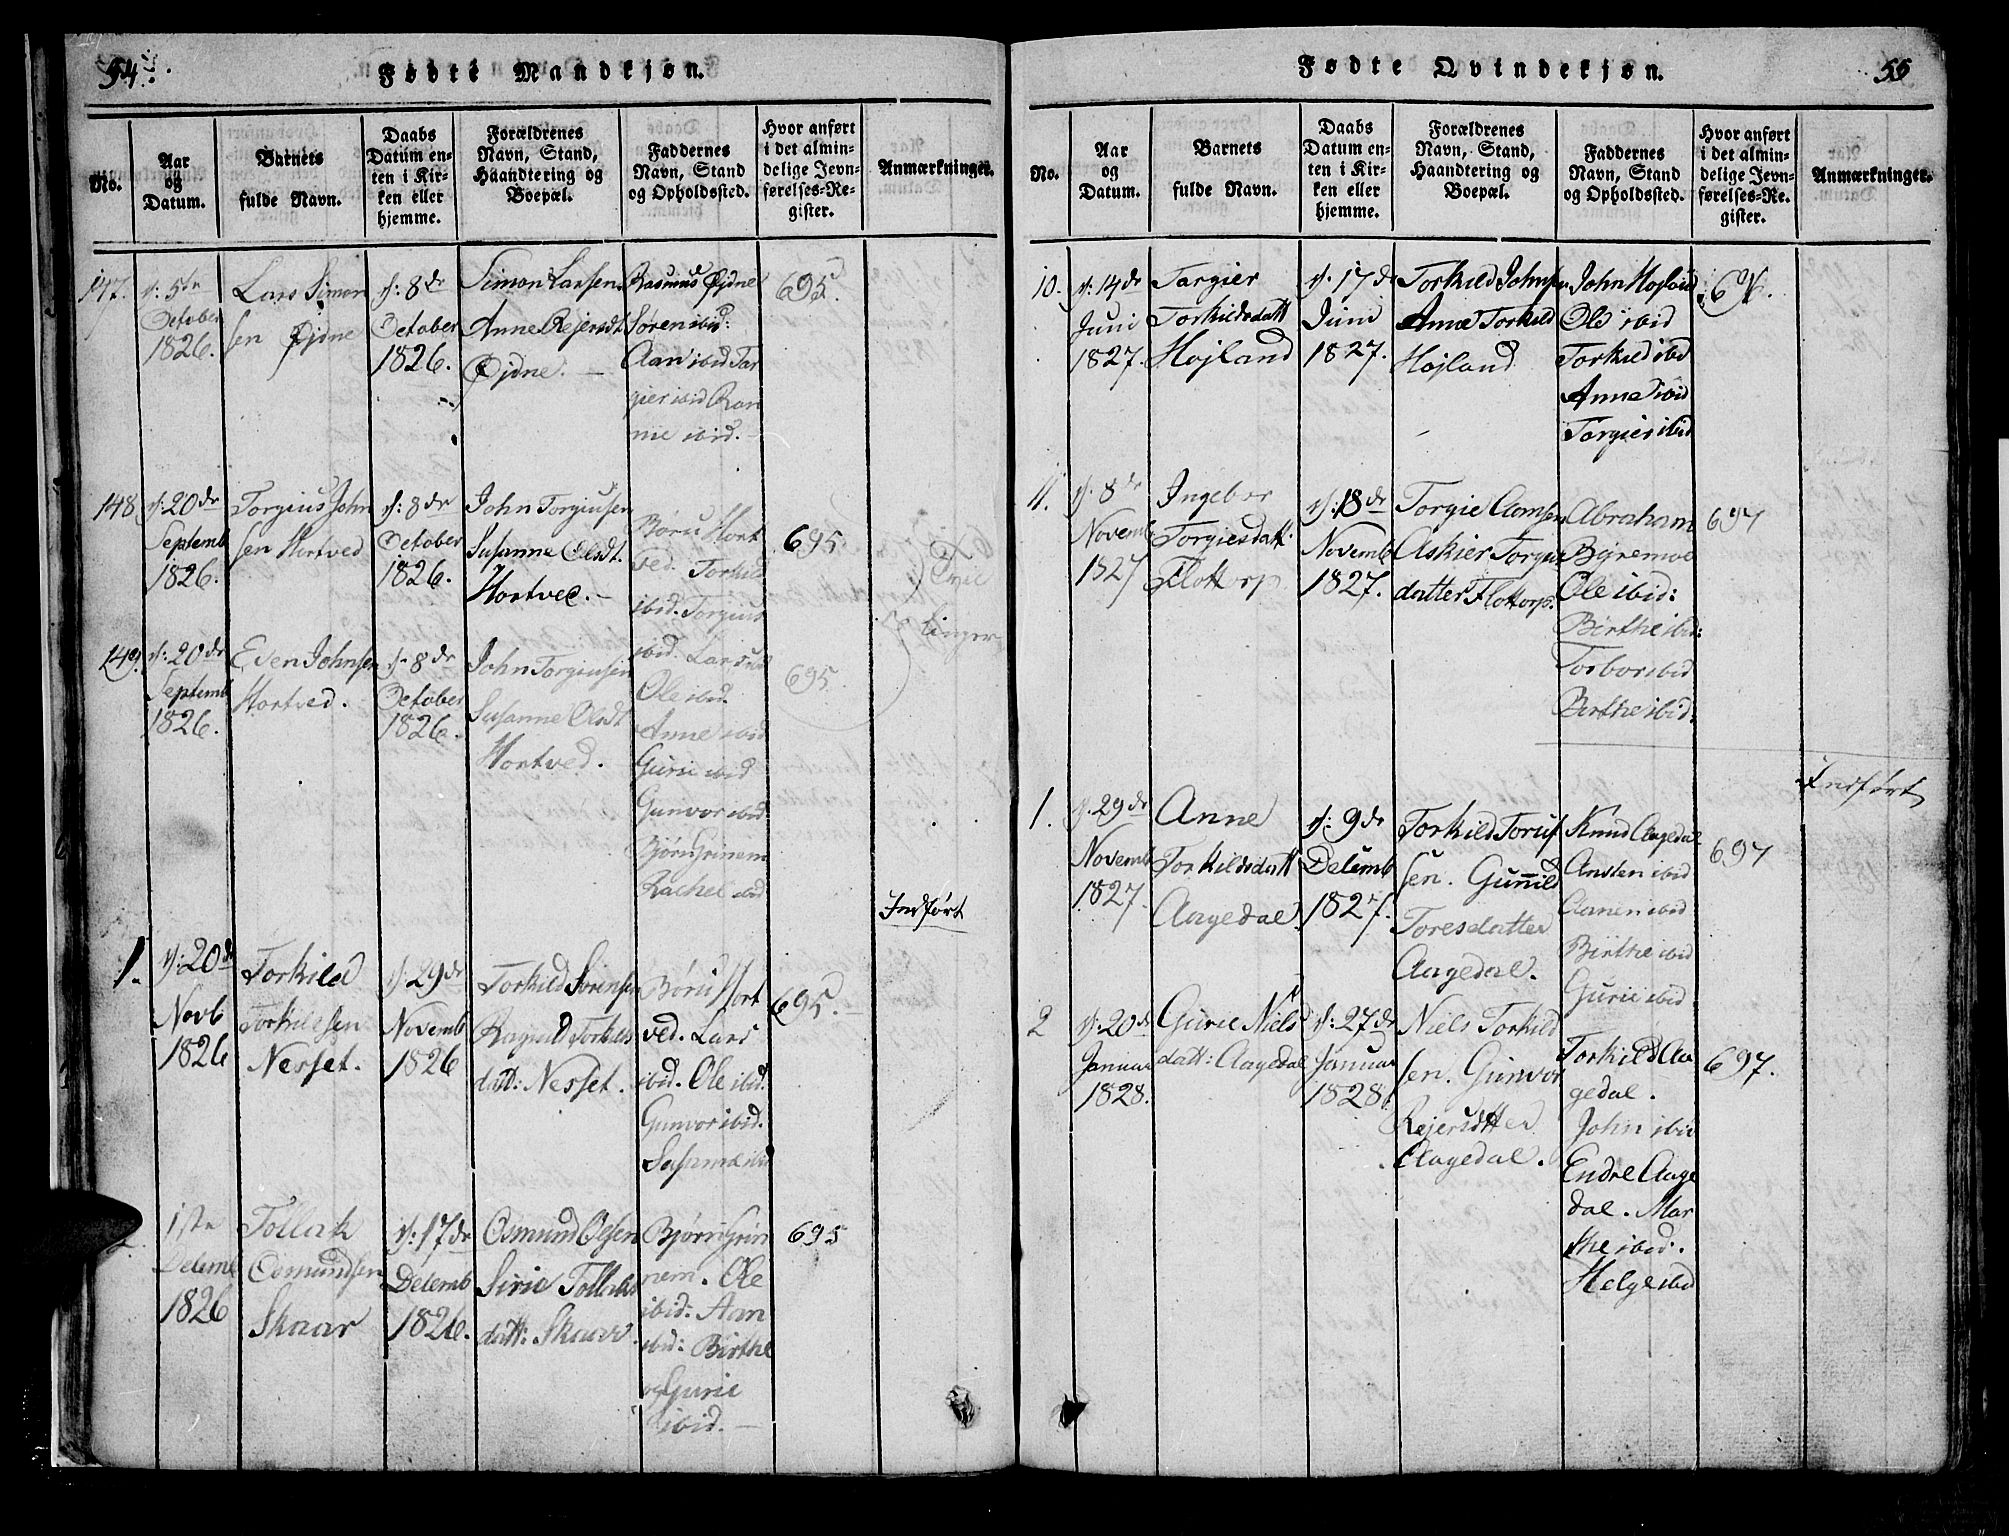 54.
Fødte Mandkjøn.
No.
Aar
og
Datum.
Barnets
fulde Navn.
Daabs
Datum en-
ten i Kir-
ken eller
hjemme.
Forældrenes
Navn, Stand,
Haandtering og
Boepæl.
Faddernes
Navn, Stand
og Opholdssted.
Hvor anført
i det almin-
delige Jevn-
førelses-Re-
gister.
Anmærkninger.
147.
d: 5te
October
1826.
Lars Simon
sen Øjdne
d: 8de
October
1826.
Simon Larsen
Anne Rejersdt
Øjdne. —
Rasmus Øjdne
Søren ibid:
Aan ibid Tar
gier ibid Ran
nie ibid. —
695.
148.
d: 20de
Septemb
1826.
Torgius John
sen Hortved
d: 8de
October
1826.
John Torgiusen
Susanne Olsdt.
Hortved. —
Børu Hort
ved. Torkild
ibid. Torgius
ibid. Lars ibid
Ole ibid.
Anne ibid
Gurie ibid
Gunvor ibid
Bjørn Grinem
Rachel ibid
695
149.
d: 20de
Septemb
1826.
Even Johnsen
Hortved.
d: 8de
October
1826.
John Torgiusen
Susanne Olsdt
Hortved.
695
Tvil
linger
Indført
1.
d: 20de
Novb
1826
Torkild
Torkildsen
Nesset.
d: 29de
Novemb
1826
Torkild Sørensen
Ragnild Torkilds
datt: Nesset.
Børu Hort
ved. Lars
ibid. Ole ibid.
Gunvor ibid.
Susanna ibid
695.
2.
1ste
Decemb
1826
Tollak
Osmundsen
Skaar
d: 17de
Decemb
1826.
Osmund Olsen
Sirie Tollaks
datt: Skaar.
Bjørn Grin
nem. Ole
ibid: Aan
ibid: Birthe
og Gurie
ibid. —
695
Fødte Qvindekjøn.
55
No.
Aar
og
Datum.
Barnets
fulde Navn.
Daabs
Datum en-
ten i Kir-
ken eller
hjemme.
Forældrenes
Navn, Stand,
Haandtering og
Boepæl.
Faddernes
Navn, Stand
og Opholdssted.
Hvor anført
i det almin-
delige Jevn-
førelses-Re-
gister.
Anmærkninger.
10.
d: 14de
Juni
1827.
Targier
Torkildsdatt
Højland
d: 17de
Juni
1827.
Torkild Johnsen
Anne Torkild
Højland
John Højland
Ole ibid
Torkild ibid
Anna ibid
Torgier ibid
11.
d: 8de
Novemb
1827
Ingebor
Torgiesdatt:
Flottorp
d: 18de
Novemb
1827.
Torgie Aamsen
Askier Torgius
datter Flottorp.
Abraham
Bÿremoe
Ole ibid:
Birthe ibid:
Torbor ibid
Berthe ibid:
697
Indført
1.
d: 29de
Novemb
1827.
Anne
Torkildsdatt
Aagedal.
d: 9de
Decemb
1827.
Torkild Torus
sen. Gunild
Toresdatter
Aagedal.
Knud Aagedal
Ansten ibid
Aanen ibid
Birthe ibid
Gurie ibid.
697
2
d: 20de
Januar
1828.
Gurie Niels
datt: Aagedal
d: 27de
Januar
1828.
Niels Torkild
sen. Gunvor
Rejersdtter
Aagedal.
Torkild Aa
gedal.
John ibid
Endre Aage
dal. Mar
the ibid.
Helge ibid
697.